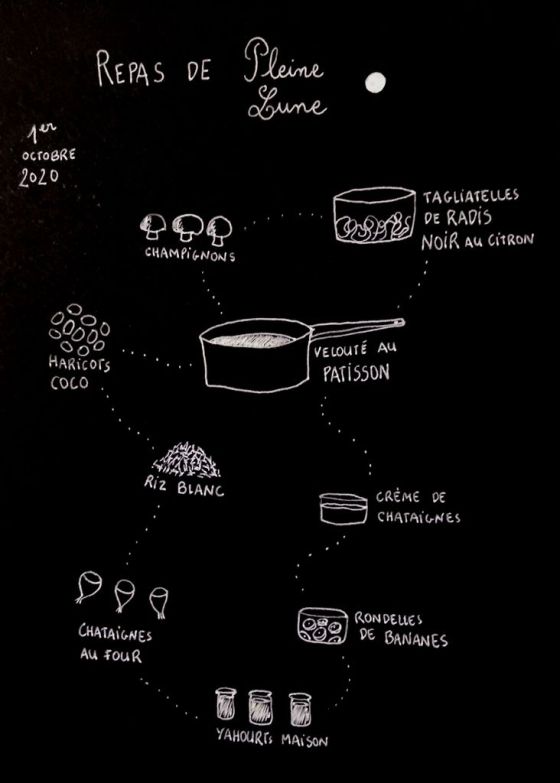 REPAS DE Pleine
Lune
1er
OCTOBRE
2020
TAGLIATELLES
DE RADIS
NOIR AU CITRON
CHAMPIGNONS
HARICOTS
COCO
VELOUTÉ AU
PATISSON
RIZ BLANC
CRÈME DE
CHATAIGNES
CHATAIGNES
AU FOUR
RONDELLES
DE BANANES
YAHOURTS MAISON